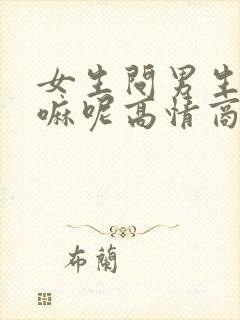 女生問男生
嘛呢高情商
布蘭